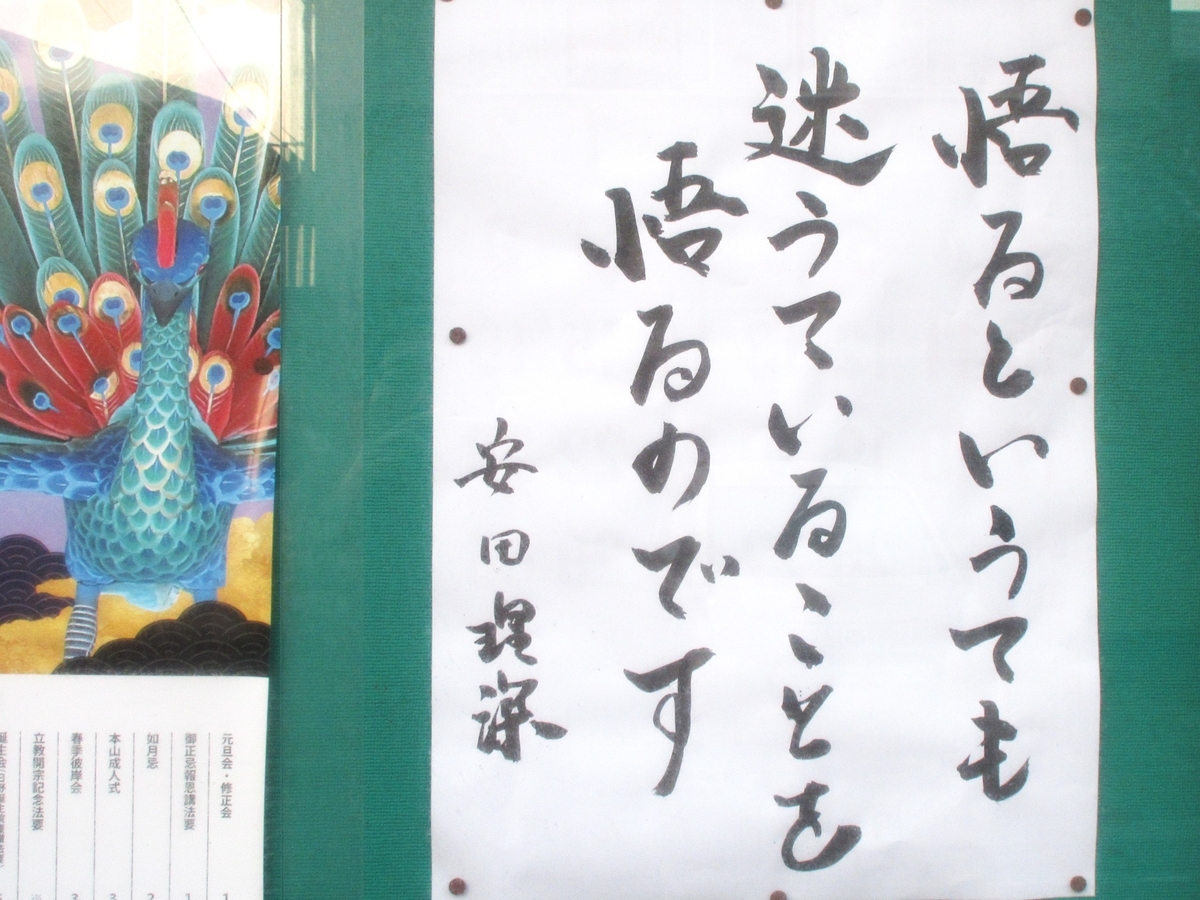 悟るというても
迷うていることを
悟るのです
安田理深
元旦会・修正会
御正忌報恩講法要
如月忌
本山成人式
春季彼岸会
立教開宗記念法要